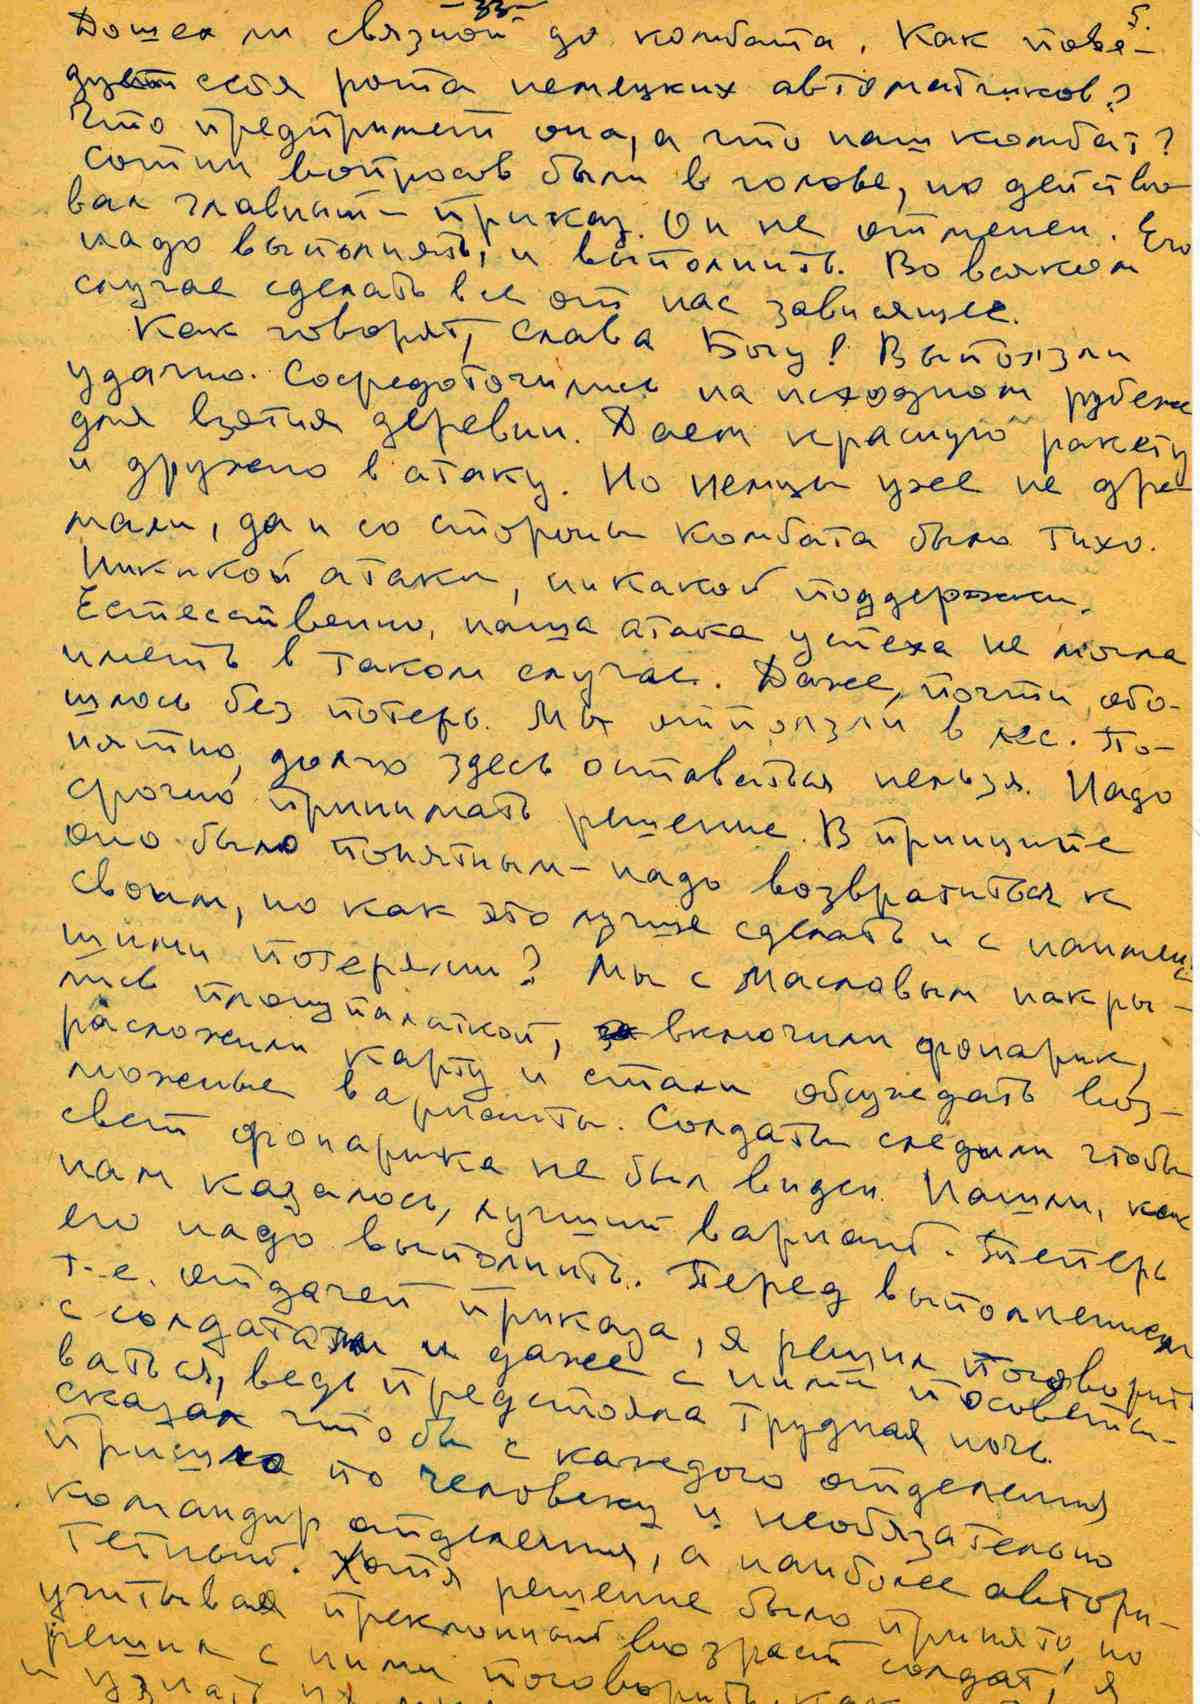 -33-
5.
Дошел ли связной до комбата. Как пове-
дет себя рота немецких автоматчиков?
Что предпримет она, а что наш комбат?
Сотни вопросов были в голове, но действо-
вал главный - приказ. Он не отменен. Его
надо выполнять, и выполнить. Во всяком
случае сделать все от нас зависящее.
Как говорят, Слава Богу! Выползли
удачно. Сосредоточились на исходном рубеже
для взятия деревни. Даем красную ракету
и дружно в атаку. Но немцы уже не дре-
мали, да и со стороны комбата было тихо.
Никакой атаки, никакой поддержки.
Естественно, наша атака успеха не могла
иметь в таком случае. Даже, почти, обо-
шлось без потерь. Мы отползли в лес. По-
нятно, долго здесь оставаться нельзя. Надо
срочно принимать решение. В принципе
оно было понятным - надо возвратиться к
своим, но как это лучше сделать и с наимень-
шими потерями? Мы с Масловым накры-
лись плащпалаткой, включили фонарик,
разложили карту и стали обсуждать воз-
можные варианты. Солдаты следили чтобы
свет фонарика не был виден. Нашли, как
нам казалось, лучший вариант. Теперь
его надо выполнить. Перед выполнением
т.е. отдачей приказа, я решил поговорить
с солдатами и даже с ними посовето-
ваться, ведь предстояла трудная ночь.
Сказал чтобы с каждого отделения
пришло по человеку и необязательно
командир отделения, а наиболее автори-
тетный. Хотя решение было принято, но
учитывая преклонный возраст солдат, я
решил с ними поговорить, как
и узнать их